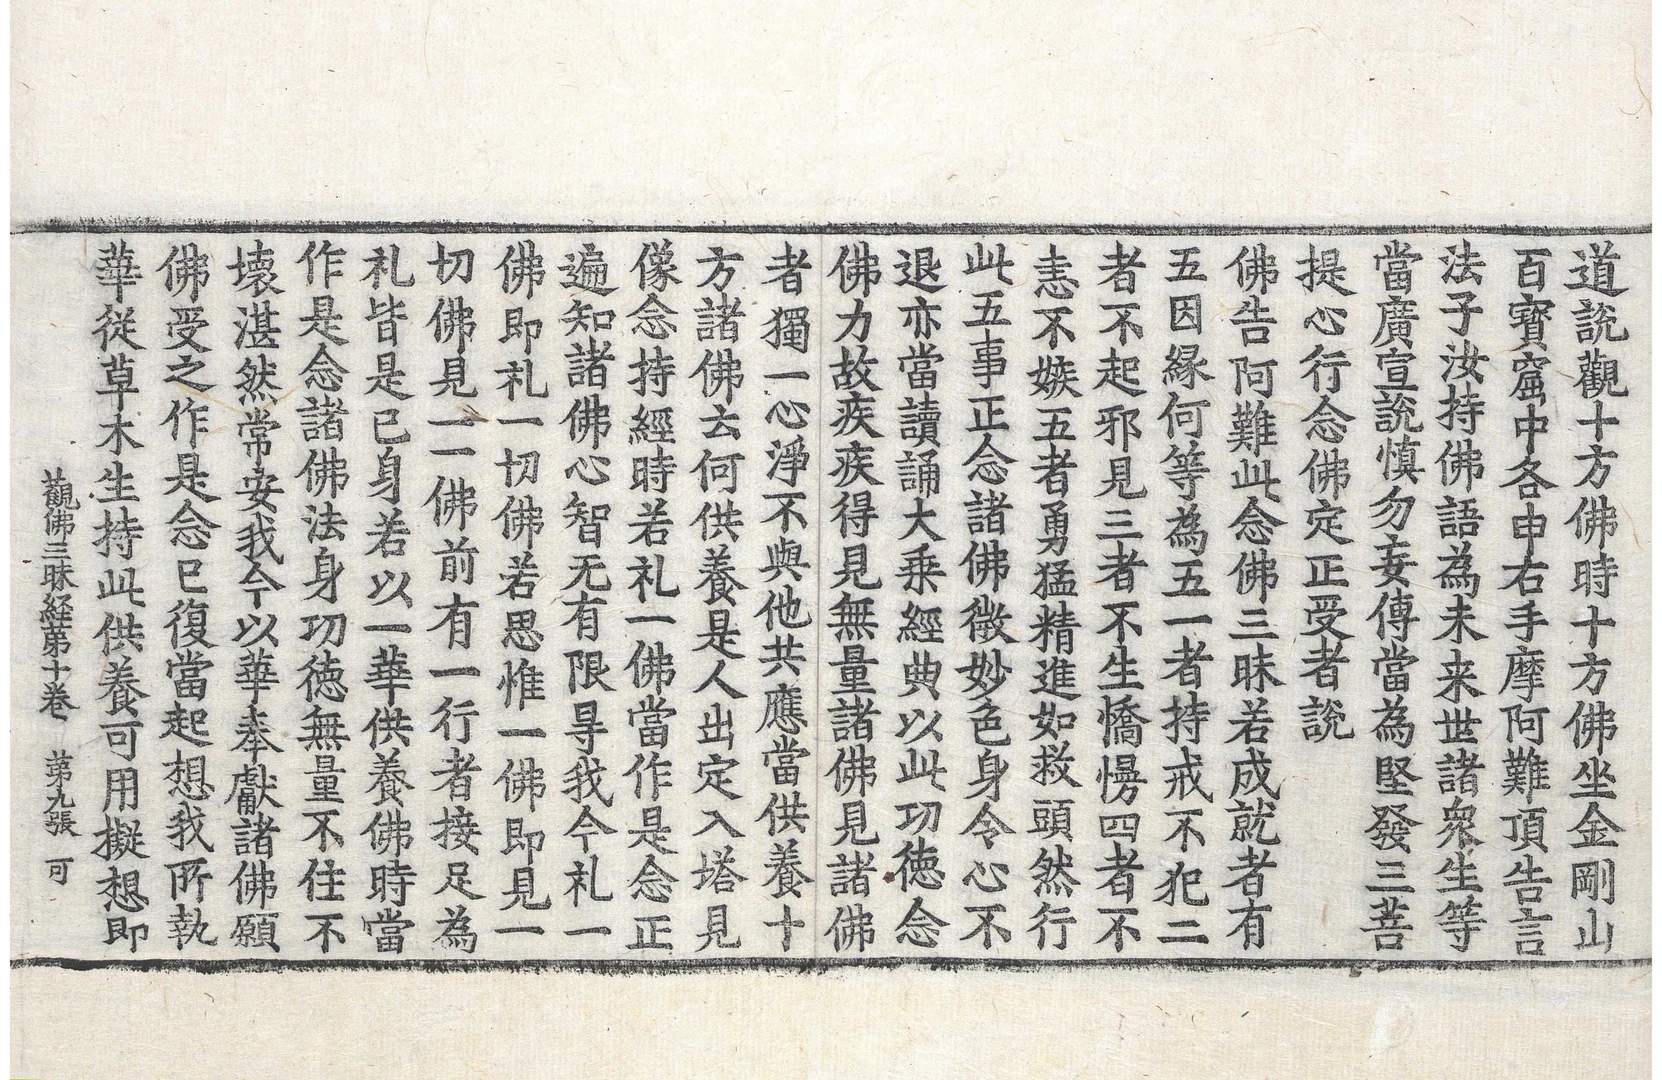 道說觀十方佛時十方佛坐金剛山
百寶窟中各申右手摩阿難頂告言
法子汝持佛語為未来世諸衆生等
當廣宣說慎勿妄傳當為堅發三菩
提心行念佛定正受者說
佛告阿難此念佛三昧若成就者有
五因緣何等為五一者持戒不犯二
者不起邪見三者不生憍慢四者不
恚不嫉五者勇猛精進如救頭然行
此五事正念諸佛微妙色身令心不
退亦當讀誦大乗經典以此功徳念
佛力故疾疾得見無量諸佛見諸佛
者獨一心淨不與他共應當供養十
方諸佛云何供養是人出定入塔見
像念持經時若礼一佛當作是念正
遍知諸佛心智无有限㝵我今礼一
佛即礼一切佛若思惟一佛即見一
切佛見一一佛前有一行者接足為
礼皆是已身若以一華供養佛時當
作是念諸佛法身功徳無量不住不
壊湛然常安我今以華奉獻諸佛願
佛受之作是念已復當起想我所執
華從草木生持此供養可用擬想即
觀佛三昧経第十卷 第九張 可